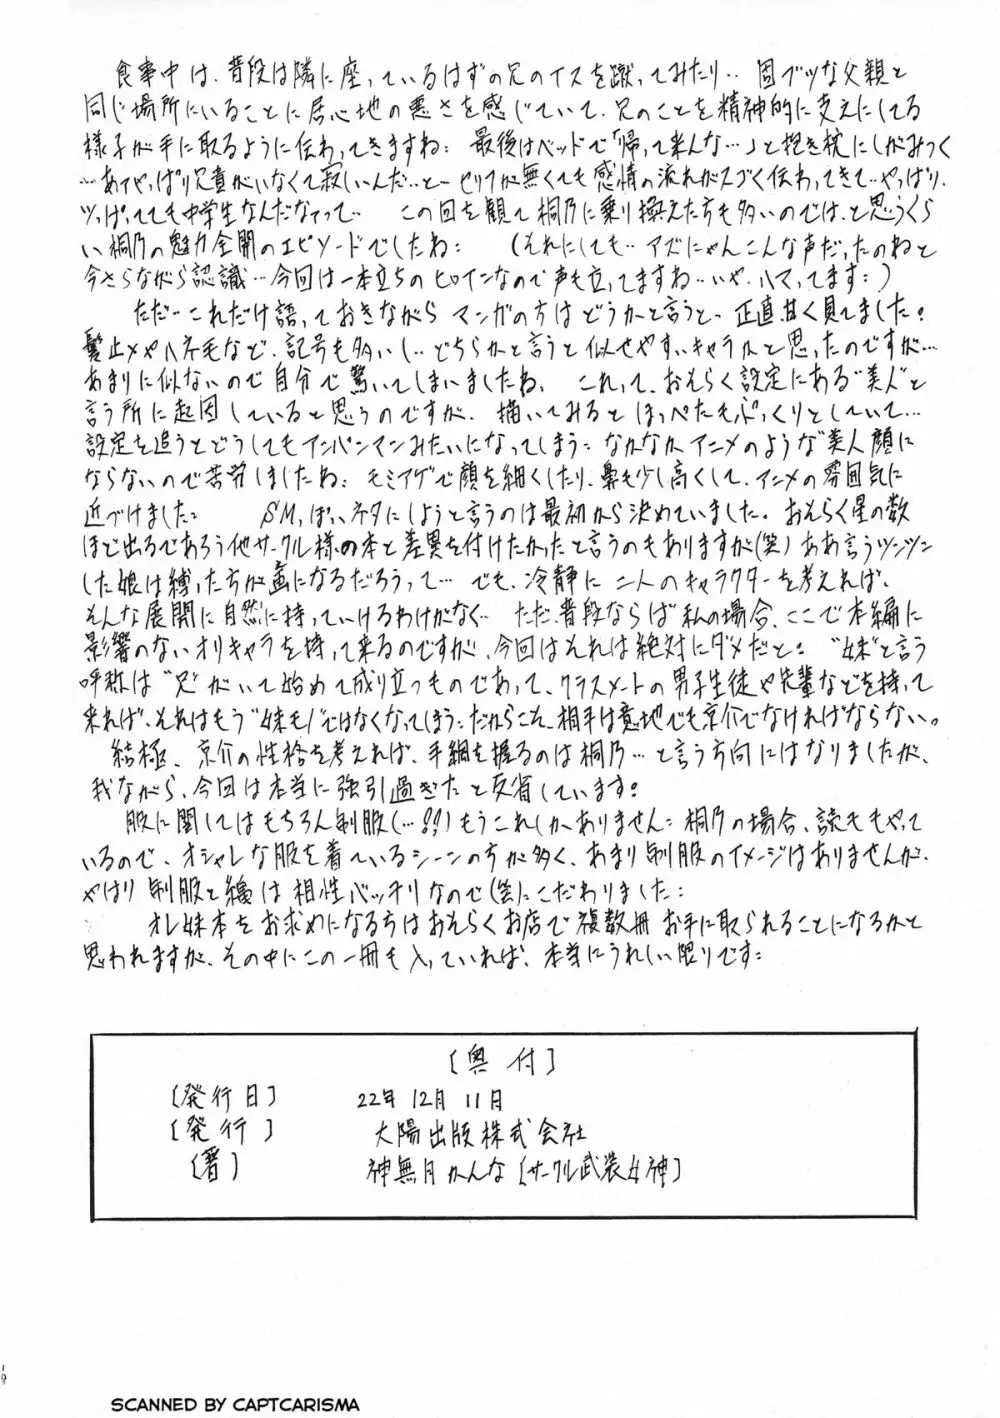 食事中は、普段は隣に座っているはずの兄のイスを蹴ってみたり‥固ブツな父親と
同じ場所にいることに居心地の悪さを感じていて、兄のことを精神的に支えにしてる
様子が手に取るように伝わってきますね: 最後はベッドで「帰って来んな…」と抱き枕にしがみつく
…あぁやっぱり兄貴がいなくて寂しいんだ‥とーセリフが無くても感情の流れがスゴく伝わってきて‥やっぱり、
ツッぱってても中学生なんだなぁって‥ この回を観て桐乃に乗り換えた方も多いのでは、と思うくら
い桐乃の魅力全開のエピソードでしたね: (それにしても‥アズにゃんこんな声だったのねと
今さらながら認識…今回は一本立ちのヒロインなので声も立ってますね‥いや、ハマってます:)
ただーこれだけ語っておきながらマンガの方はどうかと言うと、正直甘く見てました!
髪止メやハネ毛など、記号も多いし‥どちらかと言うと似せやすいキャラかと思ったのですが…
あまりに似ないので自分で驚いてしまいましたね、 これって、おそらく設定にある"美人"と
言う所に起因していると思うのですが、描いてみるとほっぺたもぷっくりとしていて…
設定を追うとどうしてもアンパンマンみたいになってしまう: なかなかアニメのような"美人顔"に
ならないので苦労しましたね: モミアゲで顔を細くしたり、鼻も少し高くして、アニメの雰囲気に
近づけました: SMっぽいネタにしようと言うのは最初から決めていました。おそらく星の数
ほど出るであろう他サークル様の本と差異を付けたかったと言うのもありますが(笑)ああ言うツンツン
した娘は縛った方が画になるだろうって… でも、冷静に二人のキャラクターを考えれば、
そんな展開に自然に持っていけるわけがなく‥ ただ、普段ならば私の場合、ここで本編に
影響のないオリキャラを持って来るのですが、今回はそれは絶対にダメだと: "妹"と言う
呼称は"兄"がいて始めて成り立つものであって、クラスメートの男子生徒や先輩などを持って
来れば、それはもう"妹モノ"ではなくなってしまう: だからこそ、相手は意地でも京介でなければならない。
結極、京介の性格を考えれば、手綱を握るのは桐乃…と言う方向にはなりましたが、
我ながら、今回は本当に強引過ぎたと反省しています:
服に関してはもちろん制服(…!!)もうこれしかありません: 桐乃の場合、読モもやって
いるので、オシャレな服を着ているシーンの方が多く、あまり制服のイメージはありませんが、
やはり制服と縄は相性バッチリなので(笑)こだわりました:
オレ妹本をお求めになる方はおそらくお店で複数冊お手に取られることになるかと
思われますが、その中にこの一冊も入っていれば、本当にうれしい限りです:
[奥付]
[発行日] 22年12月11日
[発行] 大陽出版株式会社
[著] 神無月かんな[サークル武装女神]
SCANNED BY CAPTCARISMA